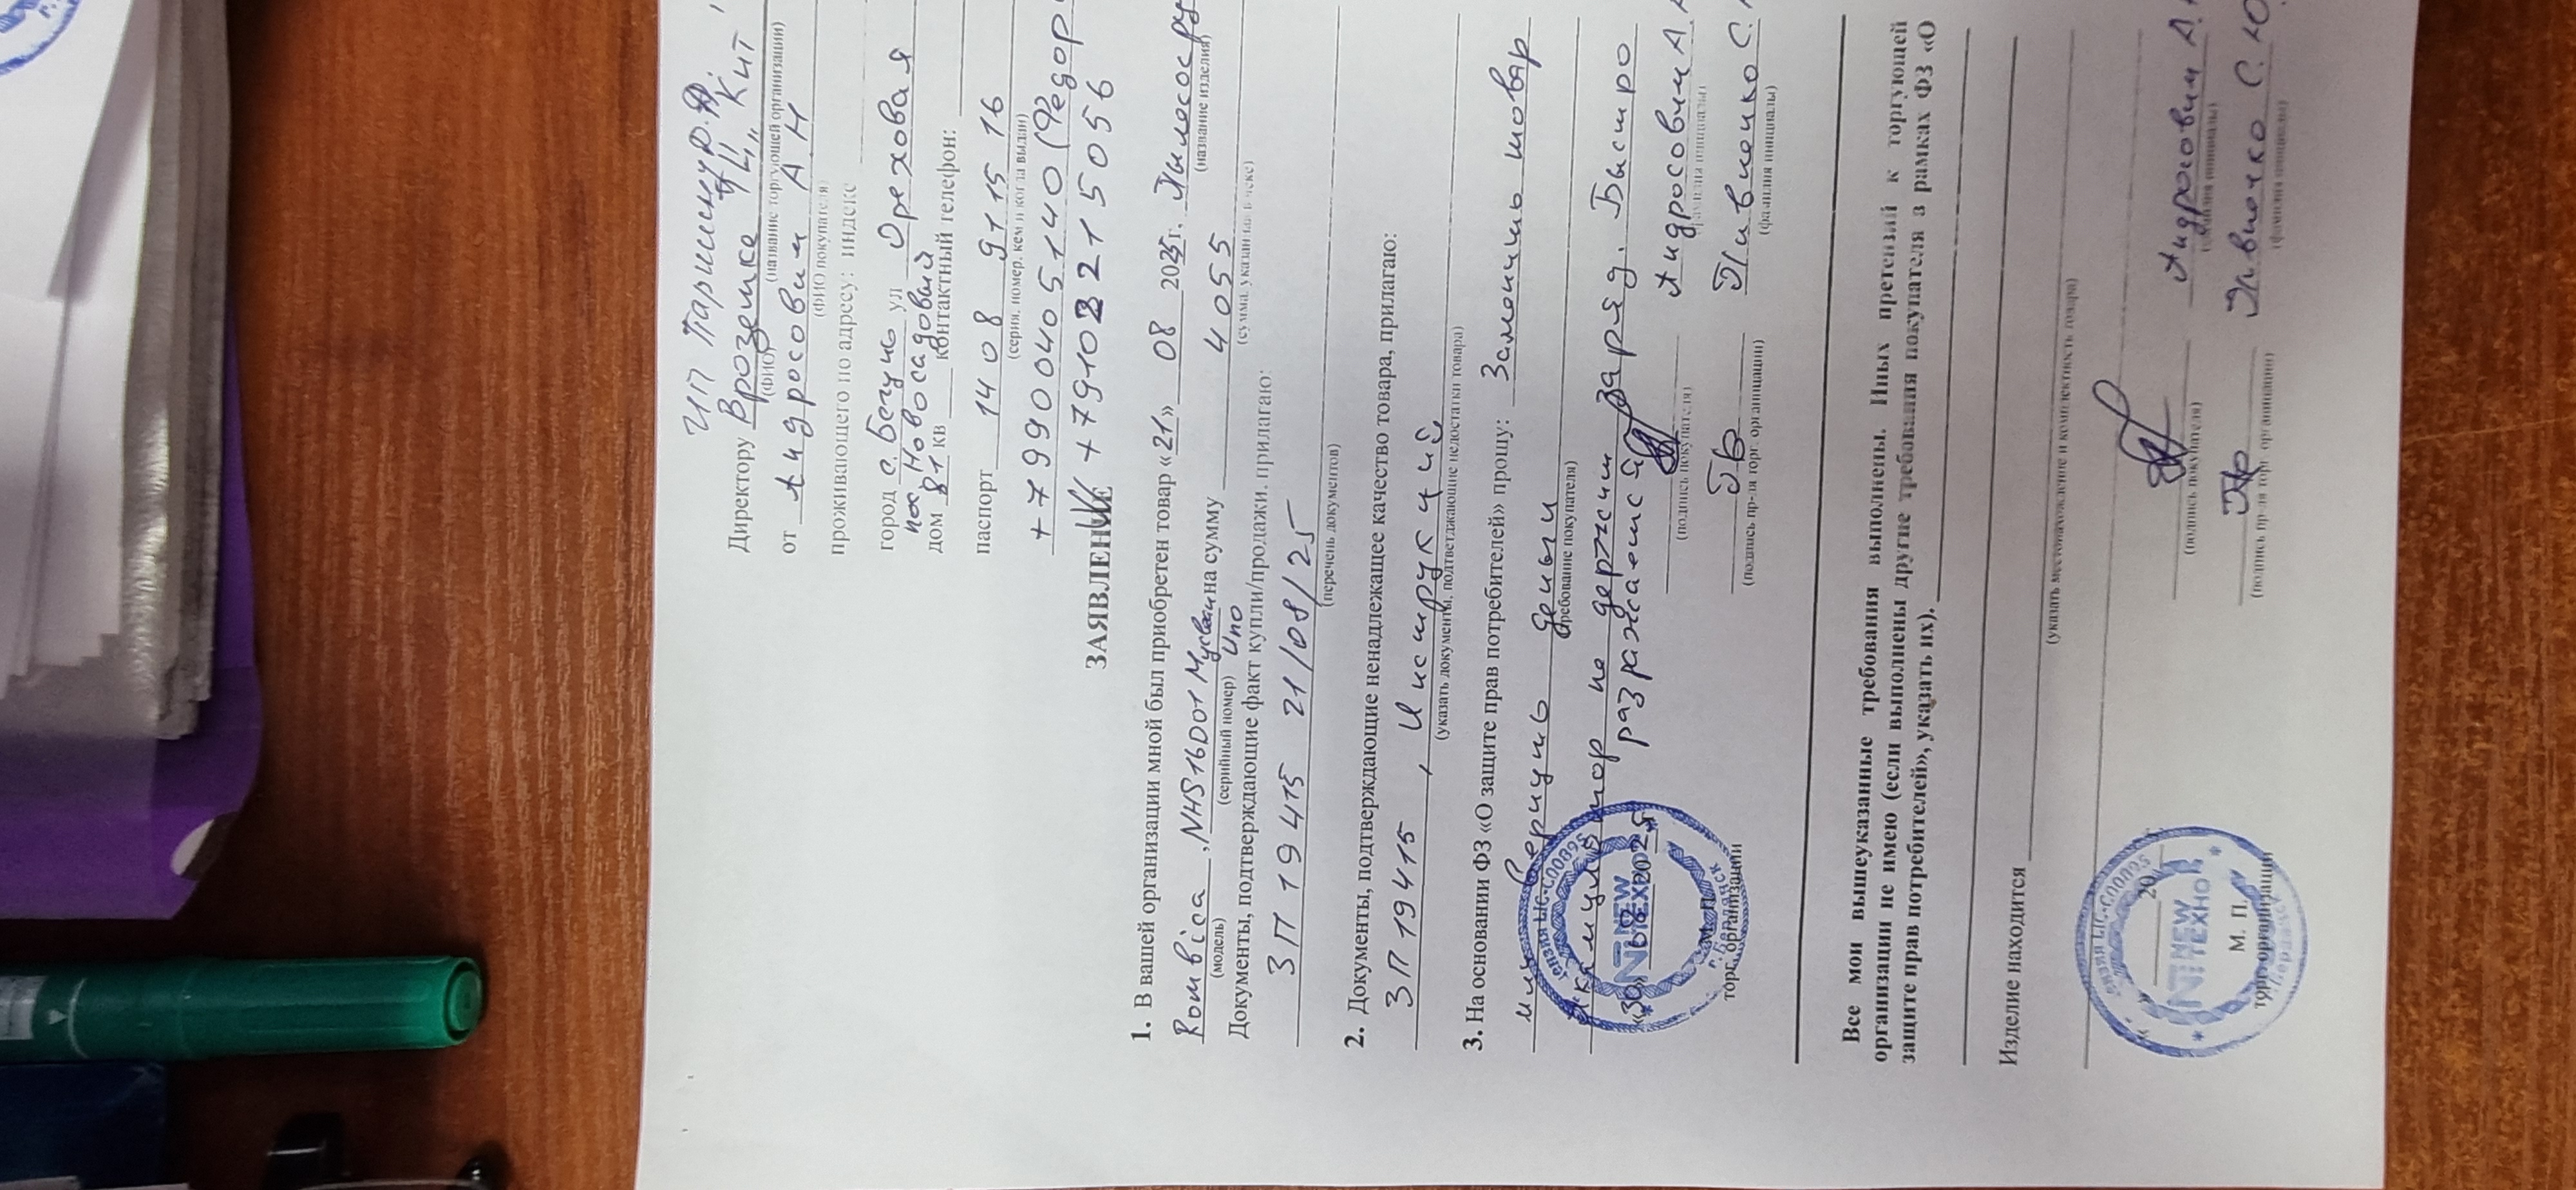 ИП Паришину Р.А.
Директору В розетке ТЦ „Кит"
(ФИО) (название торгующей организации)
от Андросовим А Н
(ФИО) покупателя)
проживающего по адресу: индекс
город с. Беғучо ул Ореховая
пос Новосадовый
дом 81 кв контактный телефон:
паспорт 1408 911516
(серия, номер, кем и когда выдан)
+79900405140 (Федор
ЗАЯВЛЕНИЕ +79103215056
1. В вашей организации мной был приобретен товар «21» 08 2025г. Пылесос ру
(название изделия)
Rombica , NHS16D01 на сумму 4055
(модель) (серийный номер) Uno (сумма, указанная в чеке)
Документы, подтверждающие факт купли/продажи, прилагаю:
ЗП 19415 21/08/25
(перечень документов)
2. Документы, подтверждающие ненадлежащее качество товара, прилагаю:
ЗП 19415 , Инструкций
(указать документы, подтверждающие недостатки товара)
3. На основании ФЗ «О защите прав потребителей» прошу: Заменить товар
или вернуть деньги
(требование покупателя)
Аккумулятор не держит заряд. Быстро
разражается
«30» 08 2025
Андросовим А.
(подпись покупателя) (фамилия инициалы)
Пивненко С.
М. П.
торг. организации (подпись пр-ля торг. организации) (фамилия инициалы)
лицензия ЦС-С00895
NEW ТЕХНО
Все мои вышеуказанные требования выполнены. Иных претензий к торгующей
организации не имею (если выполнены другие требования покупателя в рамках ФЗ «О
защите прав потребителей», указать их).
Изделие находится
(указать местонахождение и комплектность товара)
« » 20
Андросовим А.
(подпись покупателя) (фамилия инициалы)
М. П.
Пивненко С.Ю.
торг. организации (подпись пр-ля торг. организации) (фамилия инициалы)
лицензия ЦС-С00895
NEW ТЕХНО